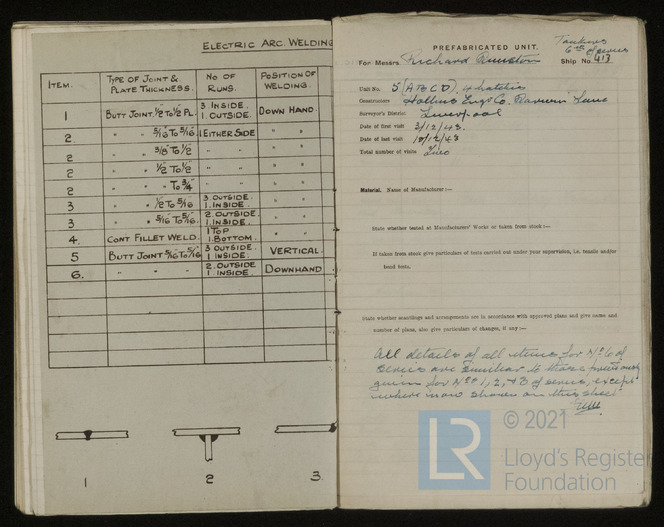 ELECTRIC ARC WELDING
ITEM. TYPE OF JOINT & PLATE THICKNESS. NO OF RUNS. POSITION OF WELDING.
1 BUTT JOINT. ½" TO ½" PL. 3. INSIDE. 1. OUTSIDE. DOWN HAND.
2. " " 5/16" TO 5/16" 1 EITHER SIDE " "
2 " " 3/8" TO ½" " "
2 " " ½" TO ½" " "
2 " " TO ¾" " "
3 " " ½" TO 5/16" 3. OUTSIDE. 1. INSIDE. " "
3 " " 5/16" TO 5/16". 2. OUTSIDE. 1. INSIDE. " "
4. CONT FILLET WELD. 1 TOP 1. BOTTOM. " "
5 BUTT JOINT 5/16" TO 5/16" 3 OUTSIDE. 1 INSIDE. VERTICAL.
6. " " " 2. OUTSIDE 1. INSIDE DOWNHAND
1 2 3.
Tankers
6th of series
PREFABRICATED UNIT.
For Messrs. Richard Ship No. 417
Unit No. 5 (A B C D). 4 hatches
Constructors Hollins Engr Co. Lane
Surveyor's District Liverpool
Date of first visit 3/12/43.
Date of last visit 18/12/43
Total number of visits Two
Material. Name of Manufacturer :—
State whether tested at Manufacturers' Works or taken from stock :—
If taken from stock give particulars of tests carried out under your supervision, i.e. tensile and/or
bend tests.
State whether scantlings and arrangements are in accordance with approved plans and give names and
number of plans, also give particulars of changes, if any :—
All details of all items for No 6 of
series are similar to those previously
given for Nos 1, 2, & 3 of series, except
where now shown on this sheet
© 2021
LR
Lloyd's Register
Foundation